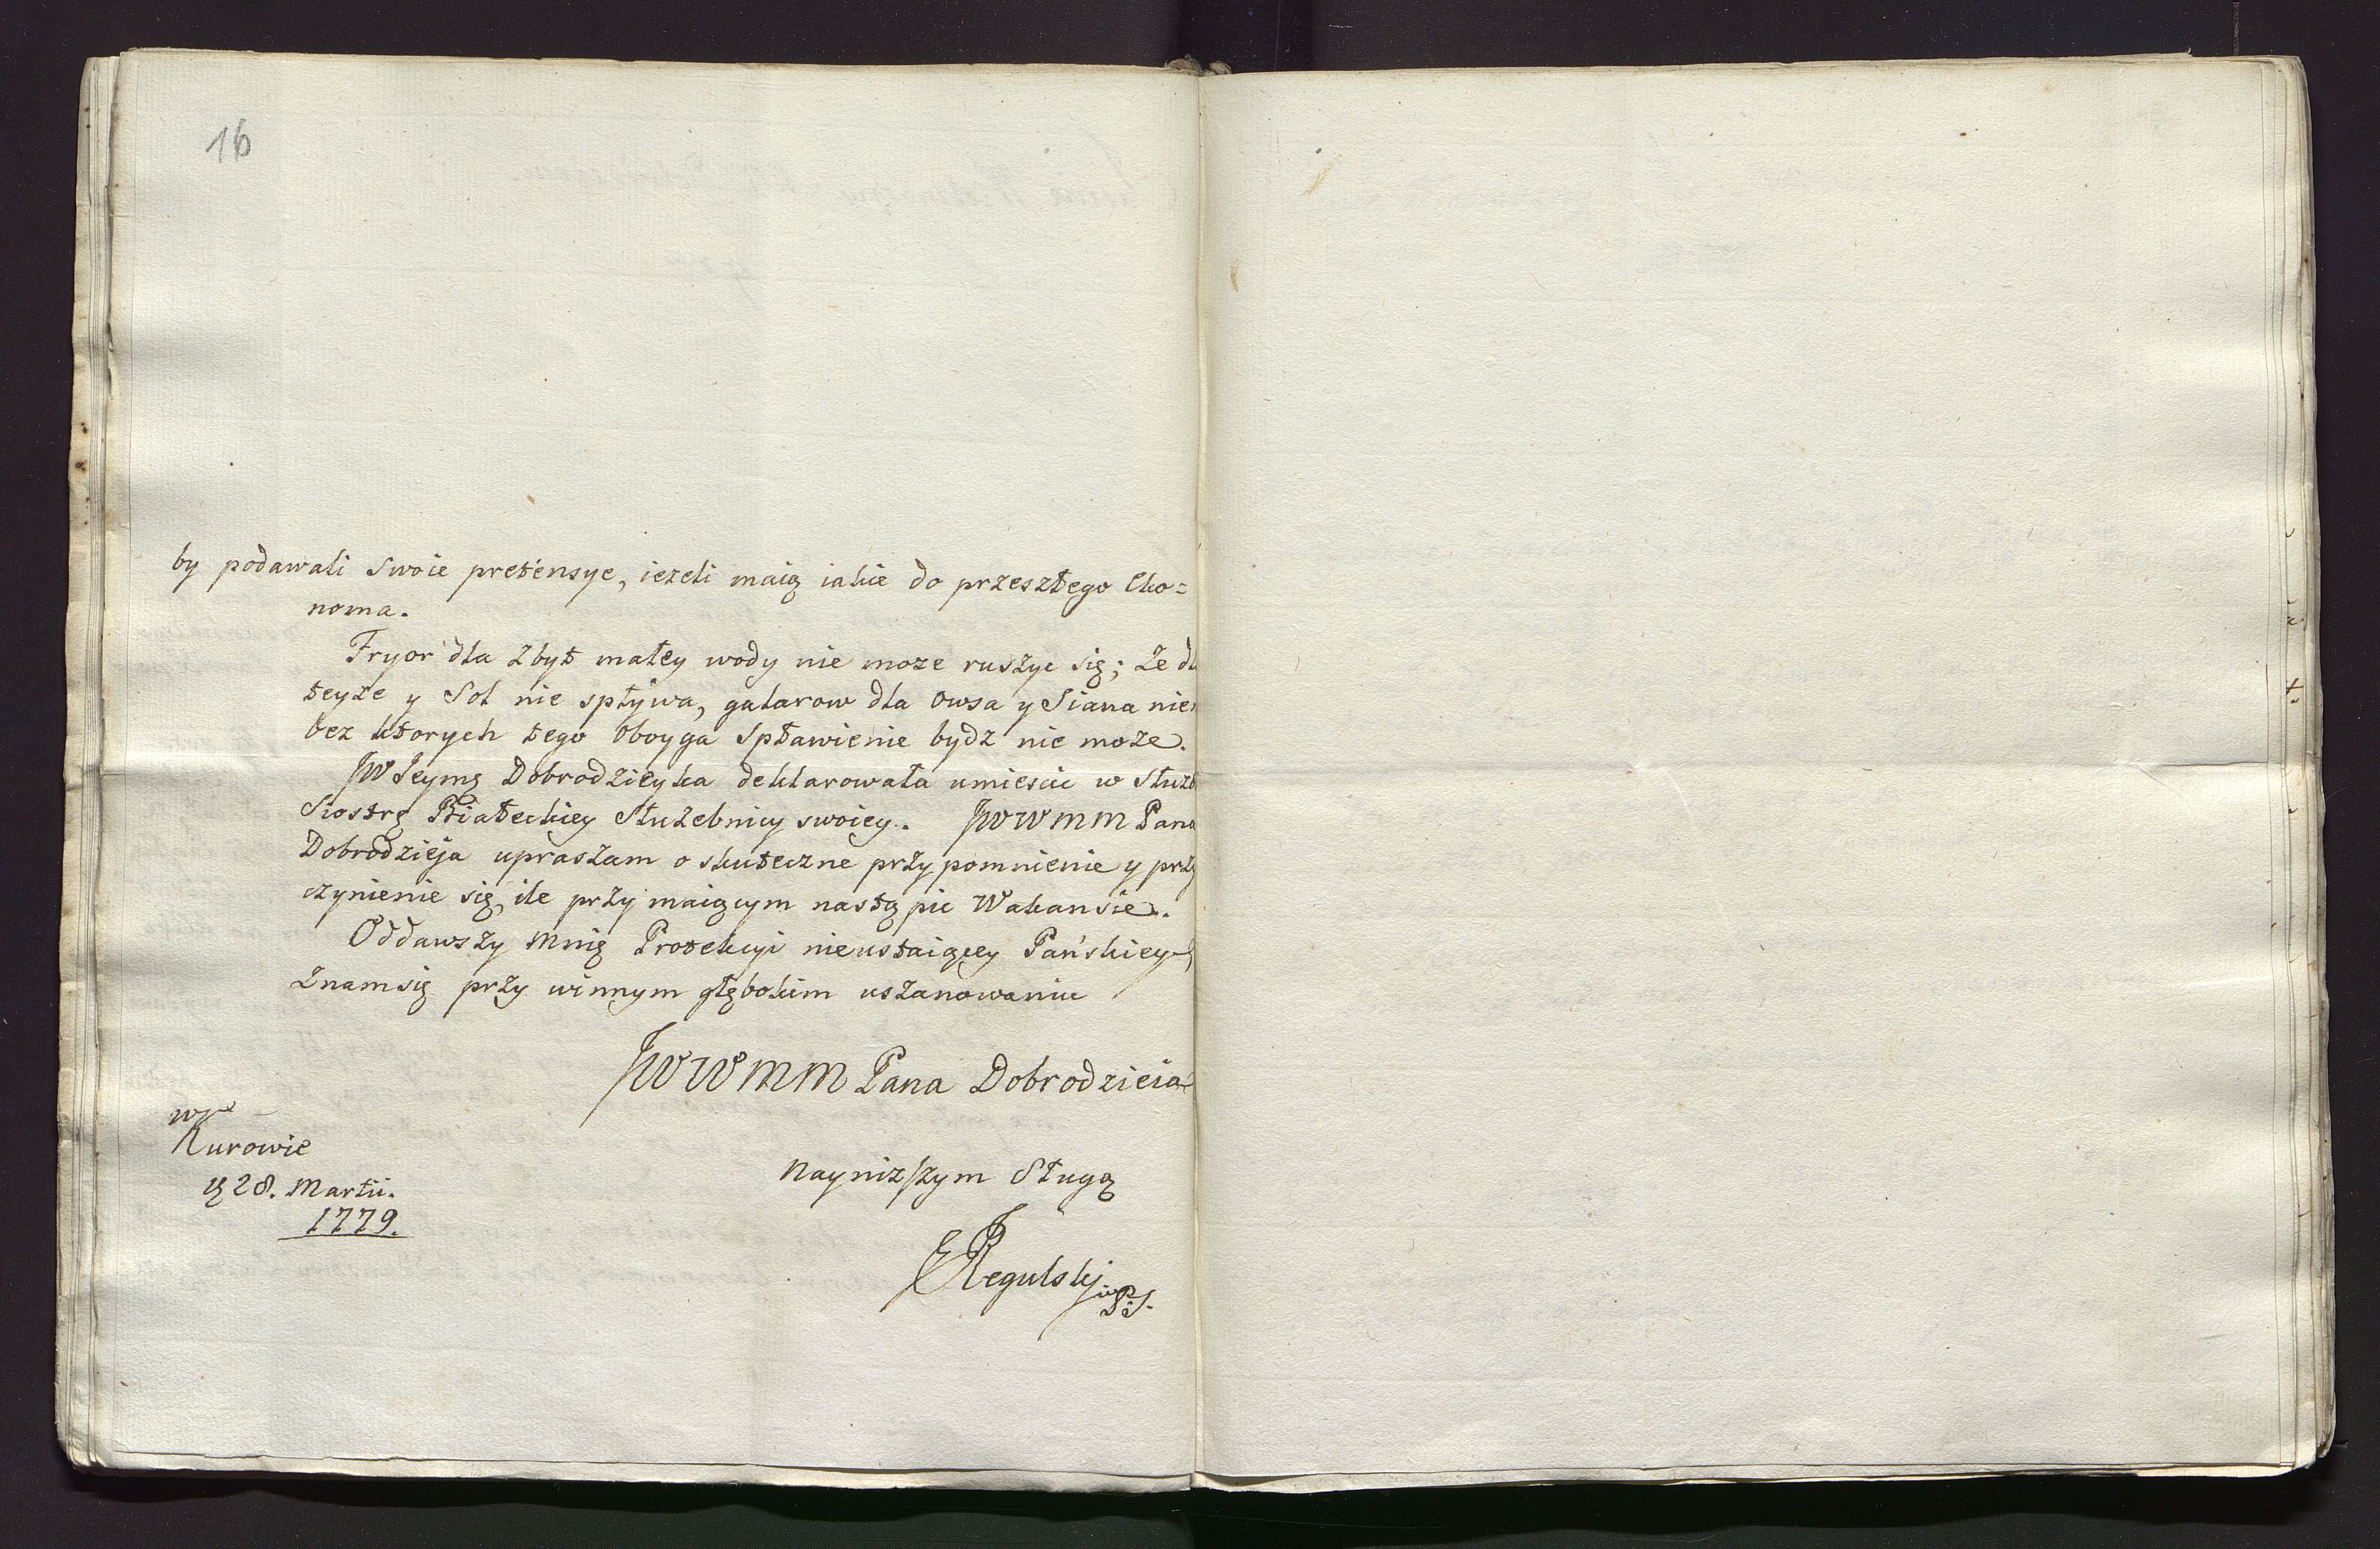 16
by podawali swoie pretensye, iezeli maią iakie do przeszłego Eko=
noma.
Fryor dla zbyt małey wody nie moze ruszyc się; ze dl
teyze y Sol nie spływa, galarow dla Owsa y Siana nie
bez ktorych tego oboyga spławienie bydz nie moze.
JW Jeymę Dobrodzieyka deklarowała umiescic w słuzb
Siostrę Białeckiey Słuzebnicy swoiey. JWWMM Pana
Dobrodzieja upraszam o skuteczne przypomnienie y przy
czynienie się, ile przy maiącym nastąpic Wakansie.
Oddawszy mnię Protekcyi nieustaiącey Pańskiey,
znam się przy winnym głębokim uszanowaniu
JWWMM Pana Dobrodzieia
w
Kurowie
28. Martii.
1779.
Nayniższym Sługą
Regulskj